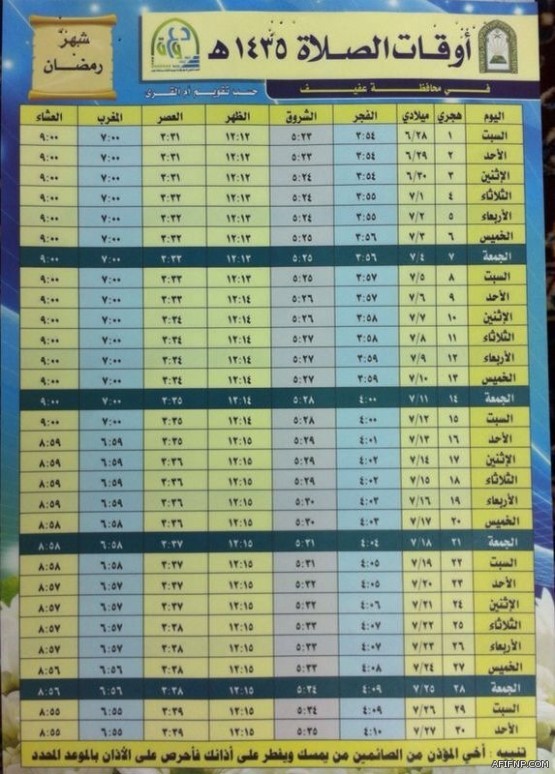 شهر
رمضان
أوقات الصلاة ١٤٣٥هـ
في محافظة عفيف
حسب تقويم أم القرى
اليوم هجري ميلادي الفجر الشروق الظهر العصر المغرب العشاء
السبت ١ ٦/٢٨ ٣:٥٤ ٥:٢٣ ١٢:١٢ ٣:٣١ ٧:٠٠ ٩:٠٠
الأحد ٢ ٦/٢٩ ٣:٥٤ ٥:٢٣ ١٢:١٢ ٣:٣١ ٧:٠٠ ٩:٠٠
الإثنين ٣ ٦/٣٠ ٣:٥٤ ٥:٢٤ ١٢:١٢ ٣:٣١ ٧:٠٠ ٩:٠٠
الثلاثاء ٤ ٧/١ ٣:٥٥ ٥:٢٤ ١٢:١٣ ٣:٣٢ ٧:٠٠ ٩:٠٠
الأربعاء ٥ ٧/٢ ٣:٥٥ ٥:٢٤ ١٢:١٣ ٣:٣٢ ٧:٠٠ ٩:٠٠
الخميس ٦ ٧/٣ ٣:٥٦ ٥:٢٥ ١٢:١٣ ٣:٣٢ ٧:٠٠ ٩:٠٠
الجمعة ٧ ٧/٤ ٣:٥٦ ٥:٢٥ ١٢:١٣ ٣:٣٣ ٧:٠٠ ٩:٠٠
السبت ٨ ٧/٥ ٣:٥٧ ٥:٢٥ ١٢:١٣ ٣:٣٣ ٧:٠٠ ٩:٠٠
الأحد ٩ ٧/٦ ٣:٥٧ ٥:٢٦ ١٢:١٤ ٣:٣٣ ٧:٠٠ ٩:٠٠
الإثنين ١٠ ٧/٧ ٣:٥٨ ٥:٢٦ ١٢:١٤ ٣:٣٤ ٧:٠٠ ٩:٠٠
الثلاثاء ١١ ٧/٨ ٣:٥٨ ٥:٢٧ ١٢:١٤ ٣:٣٤ ٧:٠٠ ٩:٠٠
الأربعاء ١٢ ٧/٩ ٣:٥٩ ٥:٢٧ ١٢:١٤ ٣:٣٤ ٧:٠٠ ٩:٠٠
الخميس ١٣ ٧/١٠ ٣:٥٩ ٥:٢٧ ١٢:١٤ ٣:٣٤ ٧:٠٠ ٩:٠٠
الجمعة ١٤ ٧/١١ ٤:٠٠ ٥:٢٨ ١٢:١٤ ٣:٣٥ ٧:٠٠ ٩:٠٠
السبت ١٥ ٧/١٢ ٤:٠٠ ٥:٢٨ ١٢:١٤ ٣:٣٥ ٧:٠٠ ٩:٠٠
الأحد ١٦ ٧/١٣ ٤:٠١ ٥:٢٩ ١٢:١٥ ٣:٣٥ ٦:٥٩ ٨:٥٩
الإثنين ١٧ ٧/١٤ ٤:٠٢ ٥:٢٩ ١٢:١٥ ٣:٣٦ ٦:٥٩ ٨:٥٩
الثلاثاء ١٨ ٧/١٥ ٤:٠٢ ٥:٢٩ ١٢:١٥ ٣:٣٦ ٦:٥٩ ٨:٥٩
الأربعاء ١٩ ٧/١٦ ٤:٠٣ ٥:٣٠ ١٢:١٥ ٣:٣٦ ٦:٥٩ ٨:٥٩
الخميس ٢٠ ٧/١٧ ٤:٠٣ ٥:٣٠ ١٢:١٥ ٣:٣٦ ٦:٥٨ ٨:٥٨
الجمعة ٢١ ٧/١٨ ٤:٠٤ ٥:٣١ ١٢:١٥ ٣:٣٧ ٦:٥٨ ٨:٥٨
السبت ٢٢ ٧/١٩ ٤:٠٥ ٥:٣١ ١٢:١٥ ٣:٣٧ ٦:٥٨ ٨:٥٨
الأحد ٢٣ ٧/٢٠ ٤:٠٥ ٥:٣٢ ١٢:١٥ ٣:٣٧ ٦:٥٧ ٨:٥٧
الإثنين ٢٤ ٧/٢١ ٤:٠٦ ٥:٣٢ ١٢:١٥ ٣:٣٧ ٦:٥٧ ٨:٥٧
الثلاثاء ٢٥ ٧/٢٢ ٤:٠٧ ٥:٣٣ ١٢:١٥ ٣:٣٨ ٦:٥٧ ٨:٥٧
الأربعاء ٢٦ ٧/٢٣ ٤:٠٧ ٥:٣٣ ١٢:١٥ ٣:٣٨ ٦:٥٧ ٨:٥٧
الخميس ٢٧ ٧/٢٤ ٤:٠٨ ٥:٣٣ ١٢:١٥ ٣:٣٨ ٦:٥٦ ٨:٥٦
الجمعة ٢٨ ٧/٢٥ ٤:٠٩ ٥:٣٤ ١٢:١٥ ٣:٣٨ ٦:٥٦ ٨:٥٦
السبت ٢٩ ٧/٢٦ ٤:٠٩ ٥:٣٤ ١٢:١٥ ٣:٣٩ ٦:٥٥ ٨:٥٥
الأحد ٣٠ ٧/٢٧ ٤:١٠ ٥:٣٥ ١٢:١٥ ٣:٣٩ ٦:٥٥ ٨:٥٥
تنبيه : أخي المؤذن من الصائمين من يمسك ويفطر على أذانك فأحرص على الأذان بالموعد المحدد
AFIFNP.COM